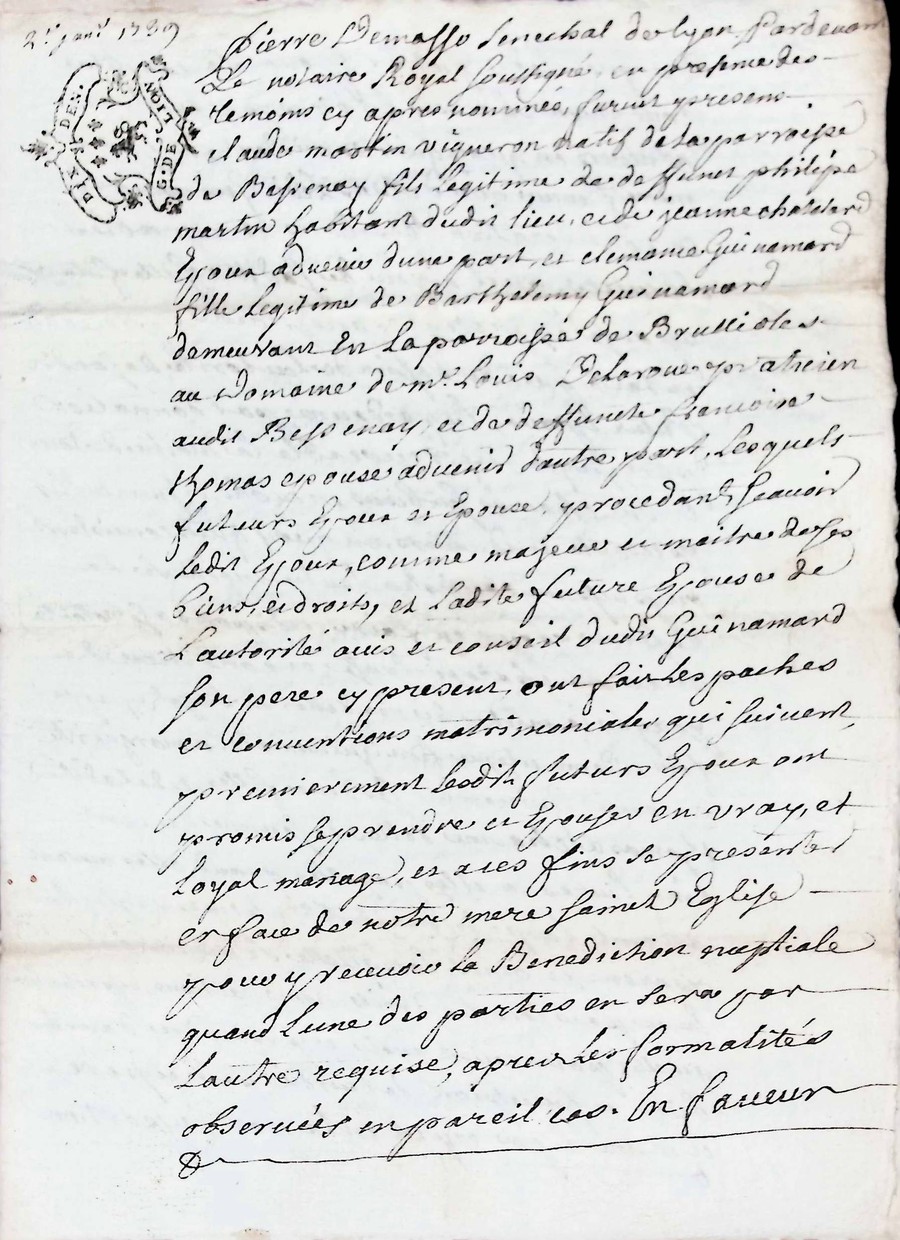 2.e janv. 1739
DIX DEN.
G. DE LION
Pierre Demasso senechal de Lyon, Pardevant
Le notaire Royal soussigné, en presence des
temoins cy apres nommés, furent presens
claude martin vigneron natif de la parroisse
de Bessenay fils Legitime de deffunct philipe
martin habitant dudit lieu, et de jeanne
Epoux advenir d'une part, et clemance Guinamard
fille Legitime de Barthelemy Guinamard
demeurant En La parroisse de Brullioles
au Domaine de mr. Louis Delaroue praticien
audit Bessenay, et de deffuncte francoise
thomas epouse advenir d'autre part, Lesquels
futurs Epoux et Epouse, procedant, scavoir
Ledit Epoux, comme majeur et maitre de ses
biens et droits, et Ladite future Epouse de
L'autorité avis et conseil dudit Guinamard
son pere cy present, ont fait Les paches
et conventions matrimoniales qui suivent,
premierement Lesdits futurs Epoux ont
promis se prendre et Epouser en vray, et
Loyal mariage, et a ces fins se présenter
en face de notre mere sainct Eglise
pour y recevoir la Benediction nuptiale
quand L'une des parties en sera par
L'autre requise, apres les formalités
observées en pareil cas. En faveur